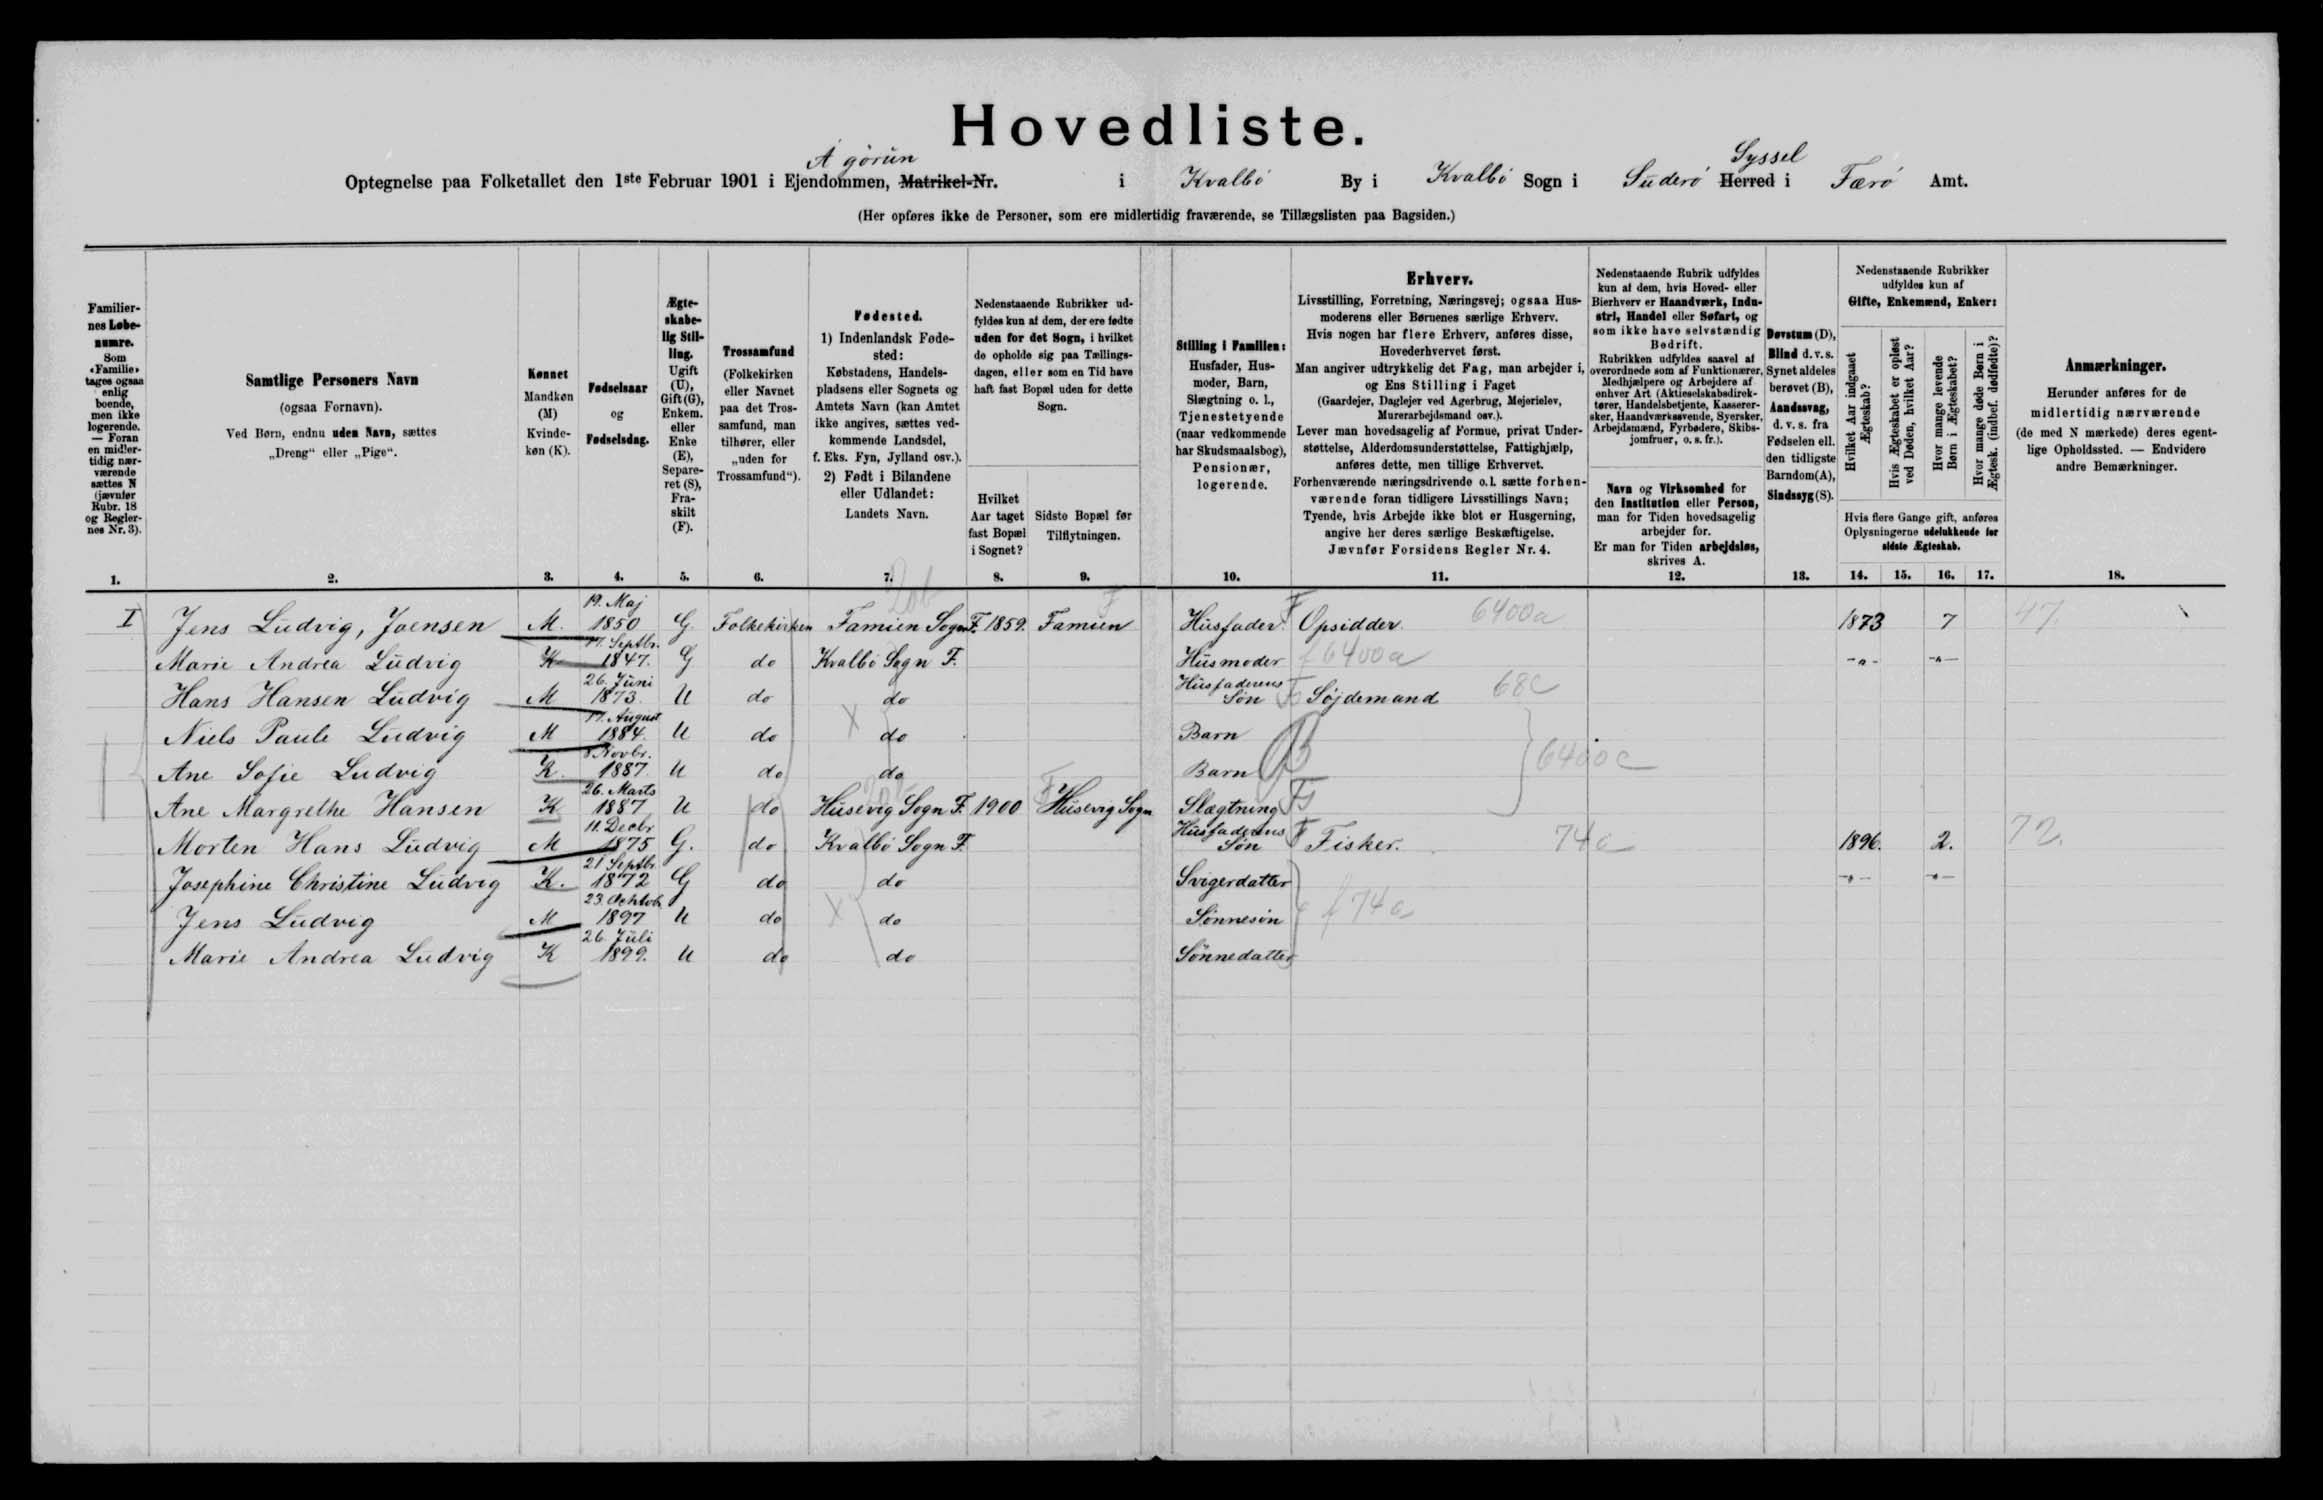 Hovedliste.
Á görün Syssel
Optegnelse paa Folketallet den 1ste Februar 1901 i Ejendommen, Matrikel-Nr. i Kvalbö By i Kvalbö Sogn i Suderö Herred i Færö Amt.
(Her opføres ikke de Personer, som ere midlertidig fraværende, se Tillægslisten paa Bagsiden.)
Familiernes Løbenumre.
Som «Familie» tages ogsaa enlig boende, men ikke logerende. — Foran en midlertidig nærværende sættes N (jævnfør Rubr. 18 og Reglernes Nr. 3).
Samtlige Personers Navn
(ogsaa Fornavn).
Ved Børn, endnu uden Navn, sættes
„Dreng“ eller „Pige“.
Kønnet
Mandkøn (M)
Kvindekøn (K).
Fødselsaar
og
Fødselsdag.
Ægteskabelig Stilling.
Ugift (U), Gift (G), Enkem. eller Enke (E), Separeret (S), Fraskilt (F).
Trossamfund
(Folkekirken eller Navnet paa det Trossamfund, man tilhører, eller „uden for Trossamfund“).
Fødested.
1) Indenlandsk Fødested:
Købstadens, Handelspladsens eller Sognets og Amtets Navn (kan Amtet ikke angives, sættes vedkommende Landsdel, f. Eks. Fyn, Jylland osv.).
2) Født i Bilandene eller Udlandet:
Landets Navn.
Nedenstaaende Rubrikker udfyldes kun af dem, der ere fødte uden for det Sogn, i hvilket de opholde sig paa Tællingsdagen, eller som en Tid have haft fast Bopæl uden for dette Sogn.
Hvilket Aar taget fast Bopæl i Sognet?
Sidste Bopæl før Tilflytningen.
Stilling i Familien:
Husfader, Husmoder, Barn, Slægtning o. l., Tjenestetyende (naar vedkommende har Skudsmaalsbog), Pensionær, logerende.
Erhverv.
Livsstilling, Forretning, Næringsvej; ogsaa Husmoderens eller Børnenes særlige Erhverv.
Hvis nogen har flere Erhverv, anføres disse, Hovederhvervet først.
Man angiver udtrykkelig det Fag, man arbejder i, og Ens Stilling i Faget
(Gaardejer, Daglejer ved Agerbrug, Mejerielev, Murerarbejdsmand osv.).
Lever man hovedsagelig af Formue, privat Understøttelse, Alderdomsunderstøttelse, Fattighjælp, anføres dette, men tillige Erhvervet.
Forhenværende næringsdrivende o. l. sætte forhenværende foran tidligere Livsstillings Navn;
Tyende, hvis Arbejde ikke blot er Husgerning, angive her deres særlige Beskæftigelse.
Jævnfør Forsidens Regler Nr. 4.
Nedenstaaende Rubrik udfyldes kun af dem, hvis Hoved- eller Bierhverv er Haandværk, Industri, Handel eller Søfart, og som ikke have selvstændig Bedrift.
Rubrikken udfyldes saavel af overordnede som af Funktionærer, Medhjælpere og Arbejdere af enhver Art (Aktieselskabsdirektører, Handelsbetjente, Kasserersker, Haandværkssvende, Syersker, Arbejdsmænd, Fyrbødere, Skibsjomfruer, o. s. fr.).
Navn og Virksomhed for den Institution eller Person, man for Tiden hovedsagelig arbejder for.
Er man for Tiden arbejdsløs, skrives A.
Døvstum (D), Blind d. v. s. Synet aldeles berøvet (B), Aandssvag, d. v. s. fra Fødselen ell. den tidligste Barndom (A), Sindssyg (S).
Nedenstaaende Rubrikker udfyldes kun af
Gifte, Enkemænd, Enker:
Hvilket Aar indgaaet Ægteskab?
Hvis Ægteskabet er opløst ved Døden, hvilket Aar?
Hvor mange levende Børn i Ægteskabet?
Hvor mange døde Børn i Ægtesk. (indbef. dødfødte)?
Hvis flere Gange gift, anføres Oplysningerne udelukkende for sidste Ægteskab.
Anmærkninger.
Herunder anføres for de midlertidig nærværende (de med N mærkede) deres egentlige Opholdssted. — Endvidere andre Bemærkninger.
1. 2. 3. 4. 5. 6. 7. 8. 9. 10. 11. 12. 13. 14. 15. 16. 17. 18.
I Jens Ludvig, Joensen M. 19. Maj 1850 G. Folkekirken Famien Sogn F. 1859. Famien Husfader F Opsidder. 6400a 1873 7 47.
Marie Andrea Ludvig K 17. Septbr. 1847. G do Kvalbö Sogn F. Husmoder f 6400a -"- -"-
Hans Hansen Ludvig M 26. Juni 1873. U do do Husfaderens Sön Söjdemand 68c
Niels Paule Ludvig M 17. August 1884. U do do Barn
Ane Sofie Ludvig K. 8 Novbr. 1887. U do do Barn 6400c
Ane Margrethe Hansen K 26. Marts 1887 U do Husevig Sogn F. 1900 Husevig Sogn Slægtning
Morten Hans Ludvig M 11. Decbr 1875 G. do Kvalbö Sogn F. Husfaderens Sön F Fisker. 74c 1896. 2. 72.
Josephine Christine Ludvig K. 21 Septbr. 1872 G do do Svigerdatter -"- -"-
Jens Ludvig M 23. Octobr. 1897 U do do Sönnesön f 74c
Marie Andrea Ludvig K 26. Juli 1899. U do do Sönnedatter